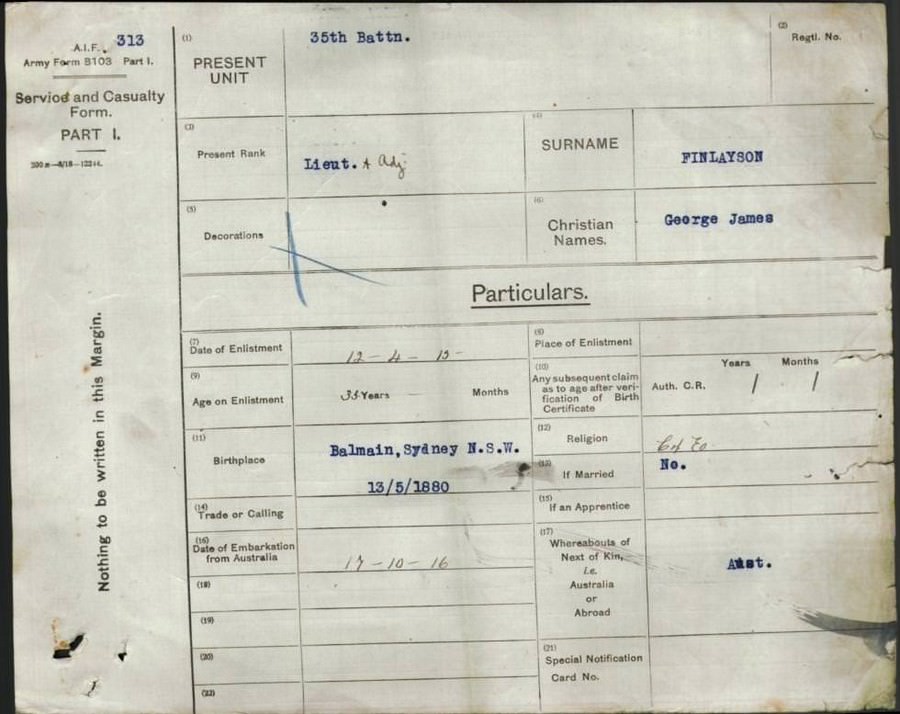 A.I.F. 313
Army Form B103 Part I.
Service and Casualty
Form.
PART I.
Nothing to be written in this Margin.
(1)
PRESENT
UNIT
35th Battn.
(2)
Regtl. No.
(3)
Present Rank
Lieut. & Adj
(4)
SURNAME
FINLAYSON
(5)
Decorations
(6)
Christian
Names.
George James
Particulars.
(7)
Date of Enlistment
12-4-15-
(8)
Place of Enlistment
(9)
Age on Enlistment
35 Years
Months
(10)
Any subsequent claim
as to age after veri-
fication of Birth
Certificate
Auth. C.R.
Years
Months
/ /
(11)
Birthplace
Balmain,Sydney N.S.W.
13/5/1880
(12)
Religion
C of E
(13)
If Married
No.
(14)
Trade or Calling
(15)
If an Apprentice
(16)
Date of Embarkation
from Australia
17-10-16
(17)
Whereabouts of
Next of Kin,
i.e.
Australia
or
Abroad
Aust.
(18)
(19)
(20)
(21)
Special Notification
Card No.
(22)